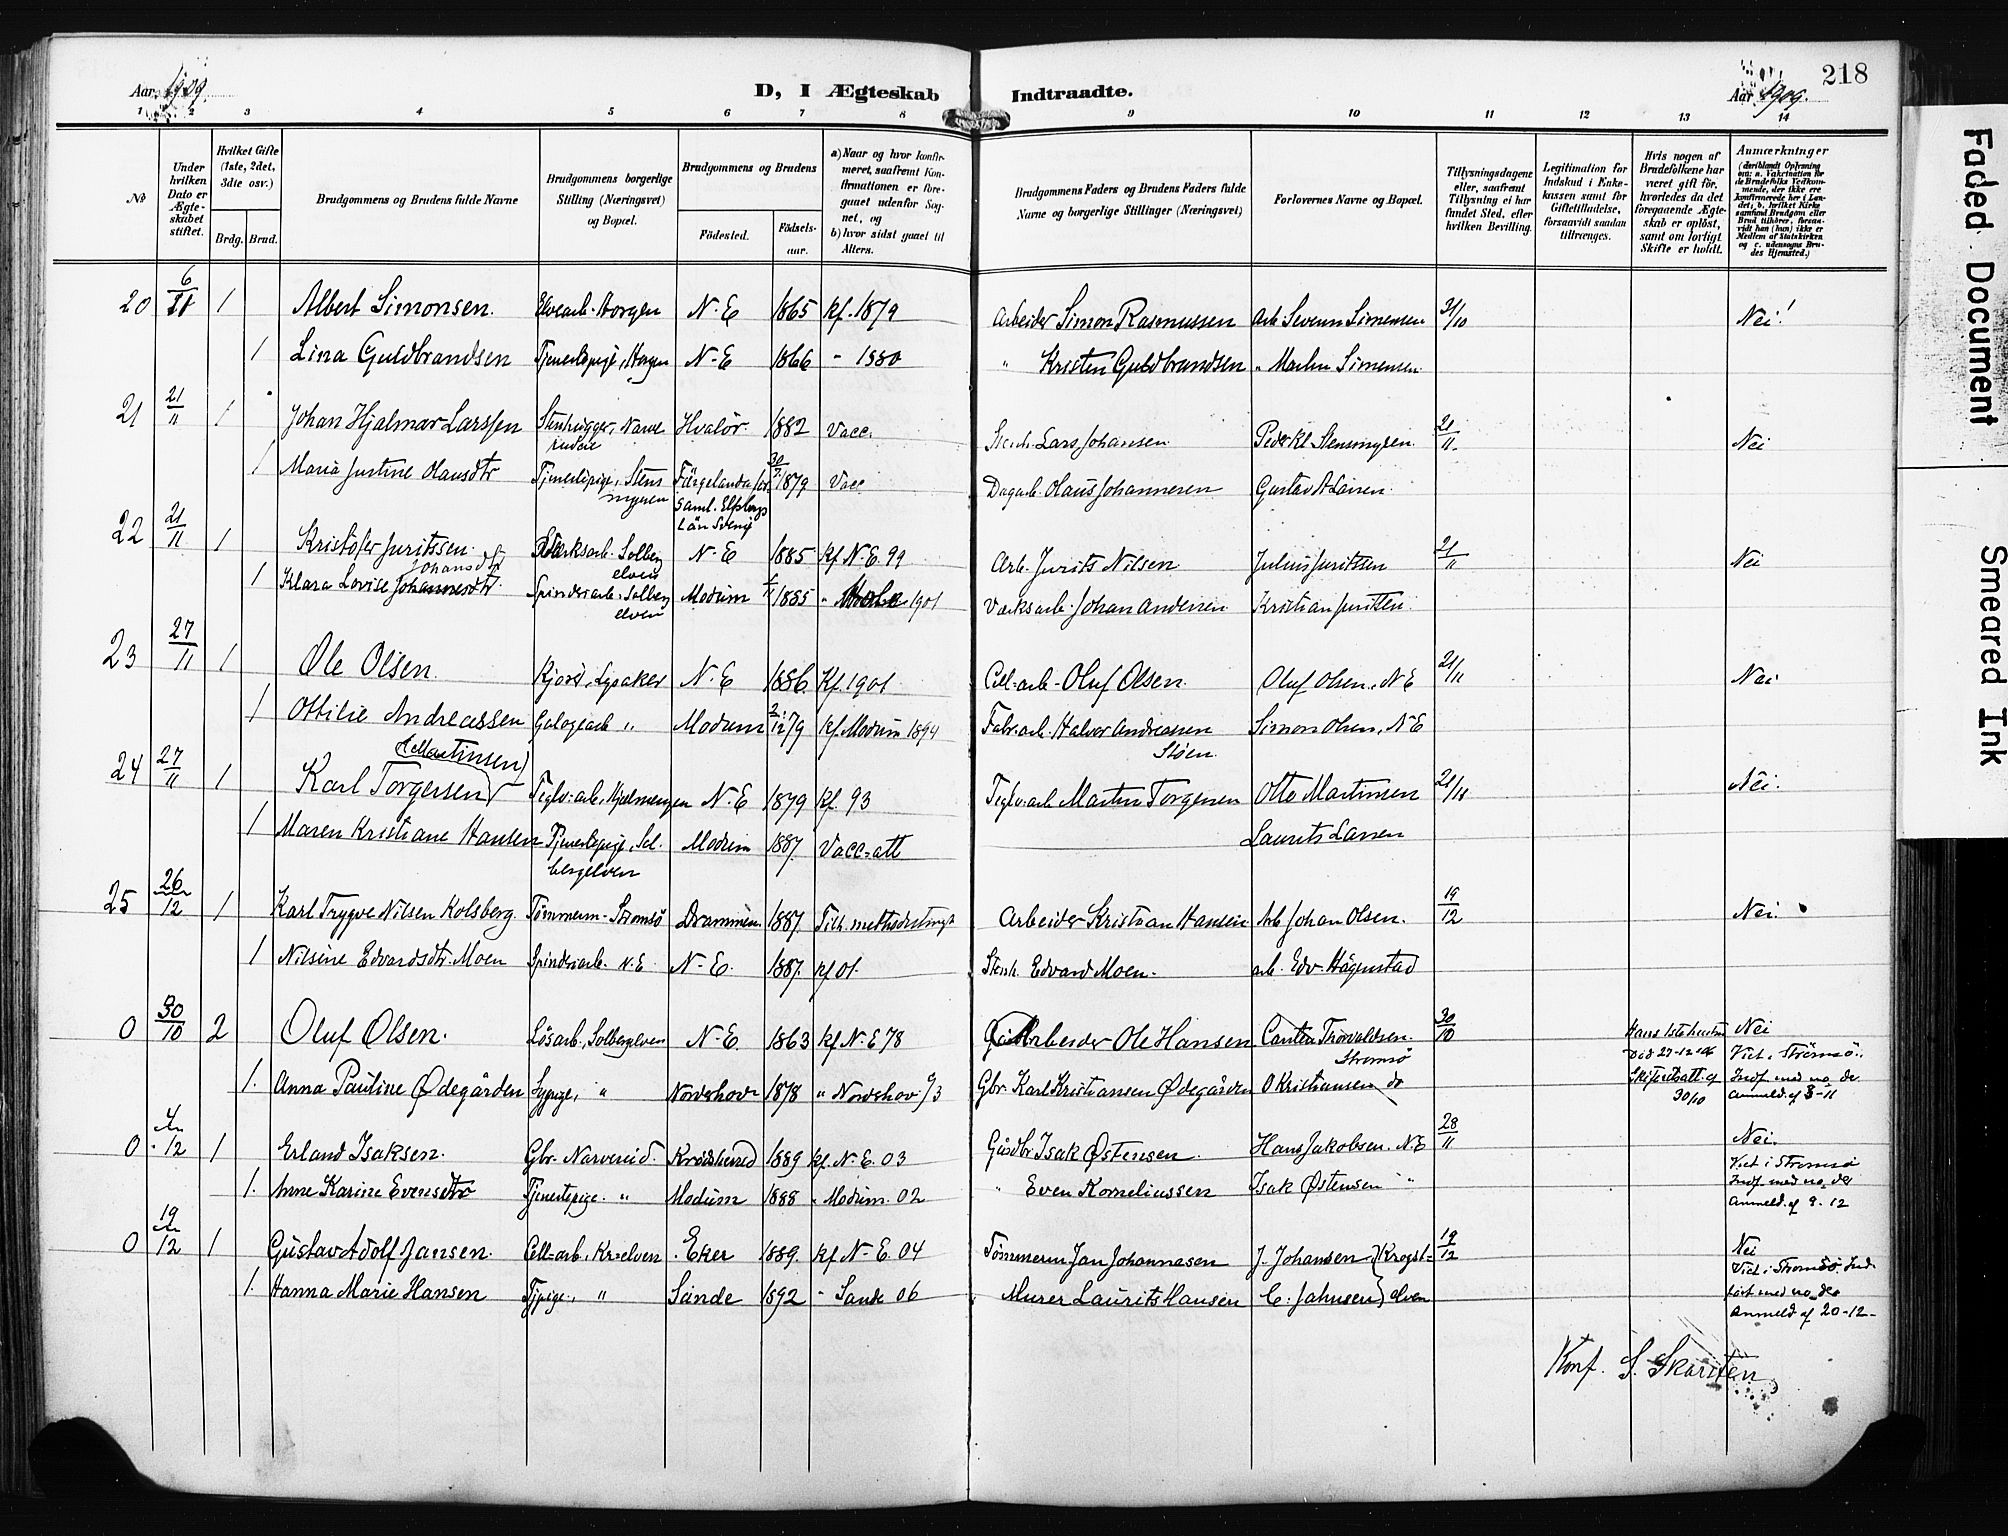 Aar 1909.
D, I Ægteskab Indtraadte.
Aar 1909.
218
1 2 3 4 5 6 7 8 9 10 11 12 13 14
No
Under hvilken Dato er Ægteskabet stiftet.
Hvilket Gifte (1ste, 2det, 3dte osv.)
Brdg. Brud.
Brudgommens og Brudens fulde Navne
Brudgommens borgerlige Stilling (Næringsvei) og Bopæl.
Brudgommens og Brudens
Fødested.
Fødselsaar.
a) Naar og hvor konfirmeret, saafremt Konfirmationen er foregaaet udenfor Sognet, og
b) hvor sidst gaaet til Alters.
Brudgommens Faders og Brudens Faders fulde Navne og borgerlige Stillinger (Næringsvei)
Forlovernes Navne og Bopæl.
Tillysningsdagene eller, saafremt Tillysning ei har fundet Sted, efter hvilken Bevilling.
Legitimation for Indskud i Enkekassen samt for Giftetilladelse, forsaavidt saadan tiltrænges.
Hvis nogen af Brudefolkene har været gift før, hvorledes da det foregaaende Ægteskab er opløst, samt om lovligt Skifte er holdt.
Anmærkninger
(deriblandt Oplysning om: a. Vakcination for de Brudefolks Vedkommende, der ikke ere konfirmerede her i Landet, b. hvilket Kirkesamfund Brudgom eller Brud tilhører, forsaavidt han (hun) ikke er Medlem af Statskirken og c. udensogns Brudes Hjemsted.)
20 6/11 1 Albert Simonsen. Elvearb. Horgen N-E 1865 kf. 1879 Arbeider Simon Rasmussen Arb Severin Simensen 31/10 Nei!
1 Lina Guldbrandsen Tjenestepige, Horgen N-E 1866 " 1880 " Kristen Guldbrandsen " Simensen
21 21/11 1 Johan Hjalmar Larssen Stenhugger, Hvalør. 1882 Vacc. Stenh. Lars Johansen Peder Kl Stensmyren 21/11 Nei
1 Maria Justine Olausdtr Tjenestepige, Stensmyren Färgelanda Saml. Elfsborgs Län Sverig 1879 Vacc Dagarb. Olaus Johannesen Gustav A Larsen
22 21/11 1 Kristofer Juritssen. Solbergelven N-E 1885 kf N.E 99 Arb. Jurits Nilsen Julius Juritsen 21/11 Nei
Johansdtr
1 Klara Lovise Johannesdtr Spinderiarb. Solbergelven Modum 1885 " 1901 Værksarb. Johan Andersen Kristian Juritsen
23 27/11 1 Ole Olsen. Lysaker N.E 1886 Kf. 1901 Cel-arb- Oluf Olsen. Oluf Olsen, N-E 21/11 Nei
1 Ottilie Andreassen " Modum 2/12 79 kf. Modum 1894 Fabr.arb. Halvor Andreassen Støen. Simon Olsen, N-E
(Martinsen)
24 27/11 1 Karl Torgersen Teglv-arb, N-E 1879 kf. 93 Teglv-arb Martin Torgersen Otto Martinsen 21/11 Nei.
1 Maren Kristiane Hansen Tjenestepige, Solbergelven Modum 1887. Vacc-att Laurits Larsen
25 26/12 1 Karl Trygve Nilsen Kolsberg. Tømmerm- Strømsø Drammen 1887. Arbeider Kristian Hansen Arb Johan Olsen. 19/12 Nei.
1 Nilsine Edvardsdtr. Moen Spinderiarb. N.E N-E. 1887. kf 01. Stenh. Edvard Moen. arb. Edv. Hågenstad
0 30/10 2 Oluf Olsen. Løsarb, Solbergelven N-E. 1863 kf N-E 78 Arbeider Ole Hansen Carsten Thorvaldsen. Strømsø 30/10 Hans 1ste hustru Død 27-12-06 Skifteatt. af 30/10 Nei Viet i Strömsö. Indf. med no. de anmeld. af 8-11
1. Anna Pauline Ødegården Sypige, " Norderhov 1878 " Norderhov 9/3 Gbr. Karl Kristiansen Ødegården O Kristiansen do
0 4/12 1 Erland Isaksen. Gbr. Narvereid. Krødsherred 1889 kf. N-E. 03 Gårdbr Isak Østensen. Hans Jakobsen. N.E 28/11 Nei. Viet i Strømsø Indf. med no. de Anmeld. af 9-12
1. Anne Karine Evensdtr Tjenestepige. " Modum 1888 " Modum. 02 " Even Korneliussen Isak Østensen "
0 19/12 1 Gustav Adolf Jansen. Cell-arb. Kr-elven Eker 1889. kf N-E. 04 Tømmerm Jan Johannesen J. Johansen } Krogst-elven 19/12 Nei Viet i Strømsø. Indført med no. de Anmeld. af 20-12-
1. Hanna Marie Hansen Tjpige., " Sande 1892 " Sande 06 Murer Laurits Hansen C. Jahnsen
Konf. S. Skarsten
Faded Document
Smeared Ink